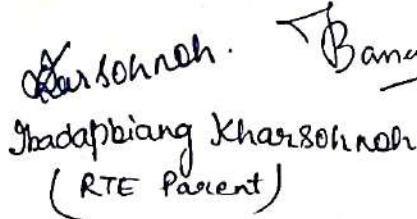 Kharsohnoh.
Ibadapbiang Kharsohnoh
(RTE Parent)